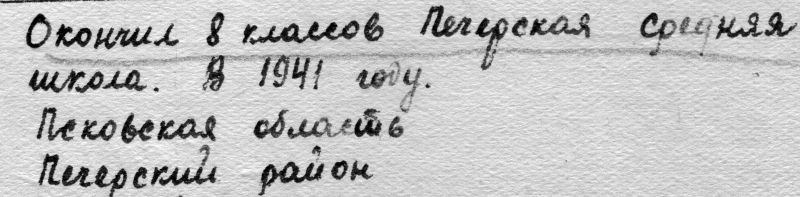 Окончил 8 классов Печерская средняя
школа. В 1941 году.
Псковская область
Печерский район